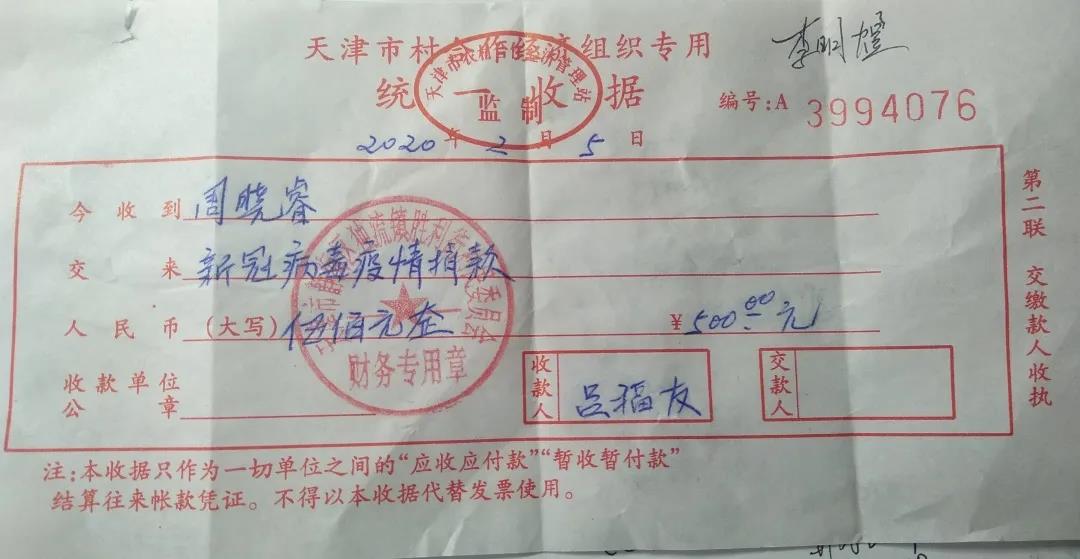 李明
天津市村合作经济组织专用
统一收据
天津市农村合作经济管理站
监制
编号:A 3994076
2020年2月5日
今收到 周晓睿
交来 新冠病毒疫情捐款
人民币(大写) 伍佰元整 ¥500.00元
独流镇胜利 委员会
财务专用章
收款单位
公章
收款人 吕福友
交款人
第二联 交缴款人收执
注:本收据只作为一切单位之间的“应收应付款”“暂收暂付款”
结算往来帐款凭证。不得以本收据代替发票使用。